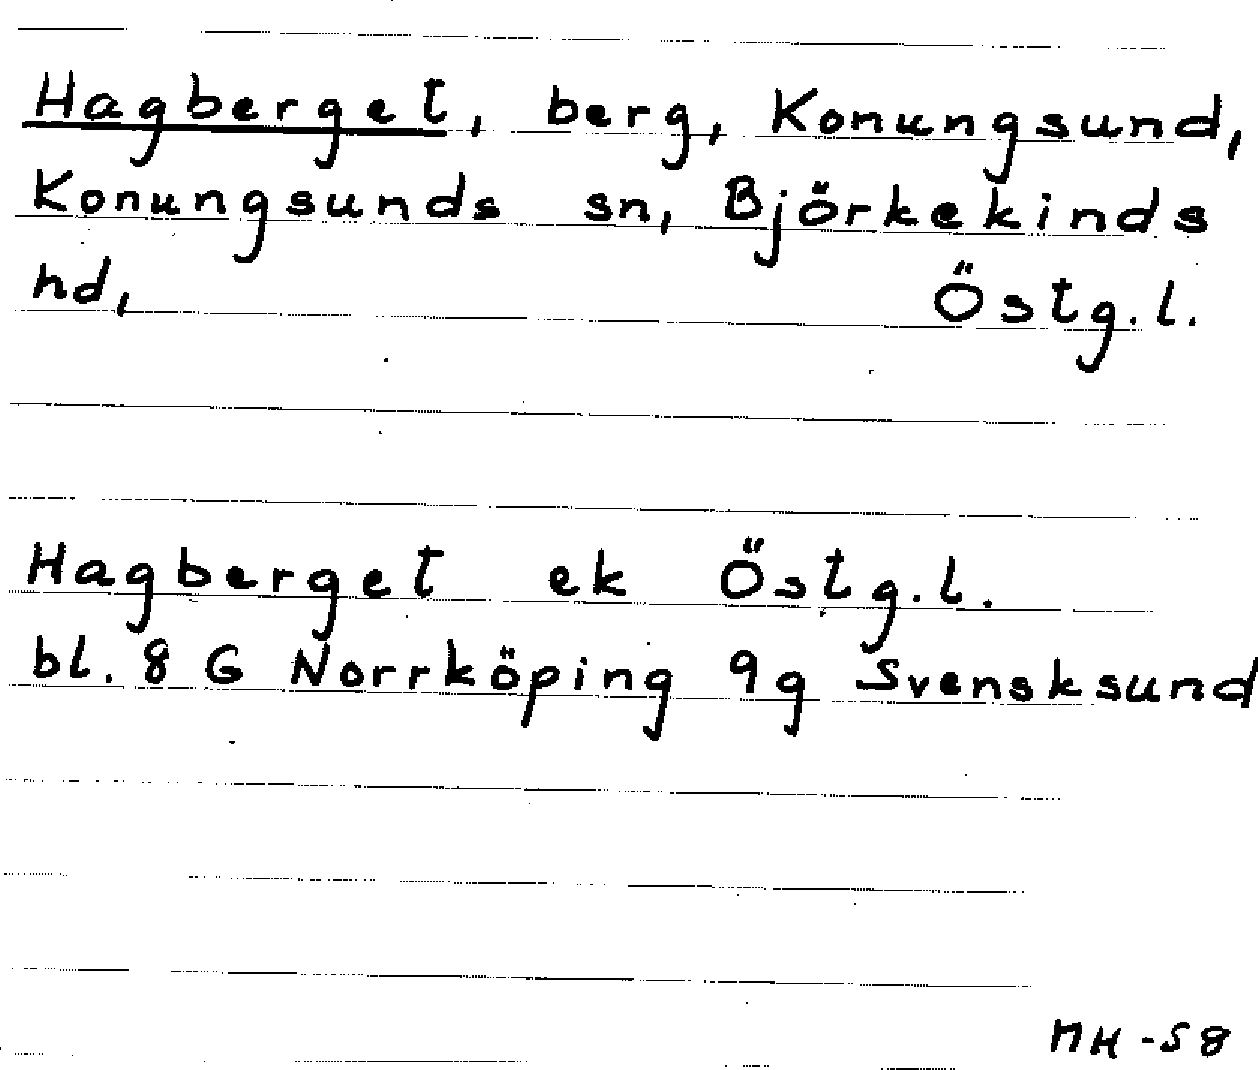 Hagberget, berg, Konungsund,
Konungsunds sn, Björkekinds
hd, Östg.l.
Hagberget ek Östg.l.
bl. 8 G Norrköping 9g Svensksund
MH-58